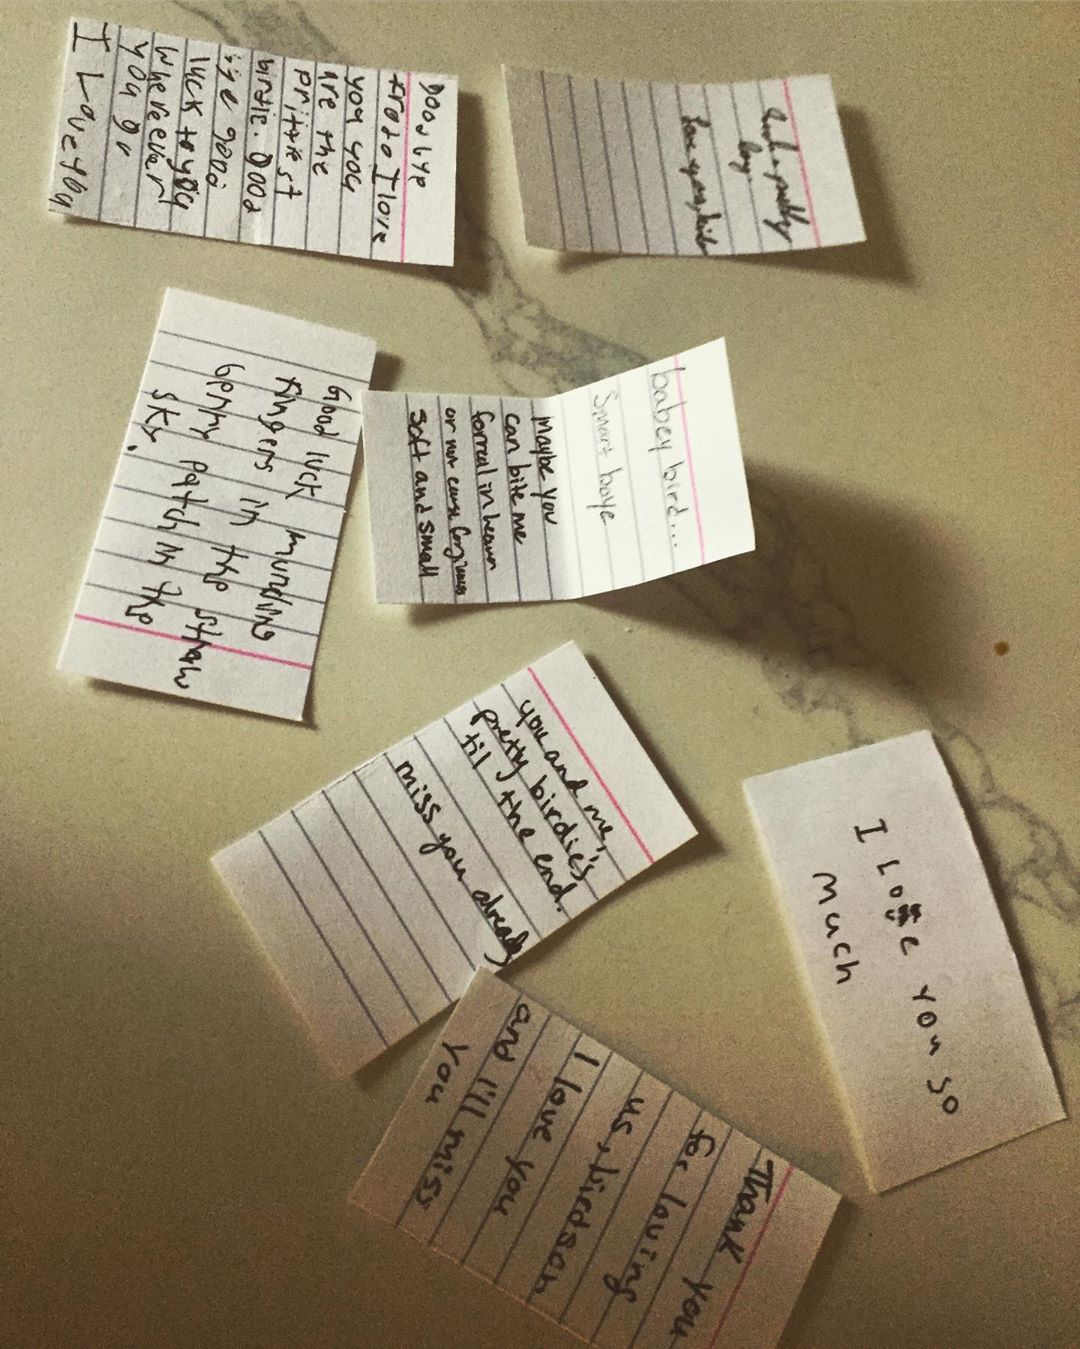 goodbye
frodo I love
you you
are the
prittiest
birdie. good
bye good
luck to you
whereever
you go
I Love you
Such a pretty
boy.
Love you, birdie
Good luck munding
fingers in the straw
Genny patch in the
sky.
babey bird...
Smart boye
maybe you
can bite me
forreal in heaven
or non cause
soft and small
you and me,
pretty birdie's
til the end.
miss you already
I Love you so
much
Thank you
for loving
us, birdson
I love you
and I'll miss
you